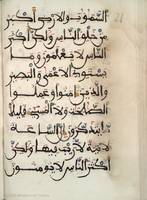 السموت والارض اكبر
من خلق الناس ولكن اكثر
الناس لا يعلمون وما
يستوي الاعمى والبصير
والذين امنوا وعملوا
الصلحت ولا المسيء قليلا
ما يتذكرون ان الساعة
لاتية لا ريب فيها ولكن
اكثر الناس لا يومنون